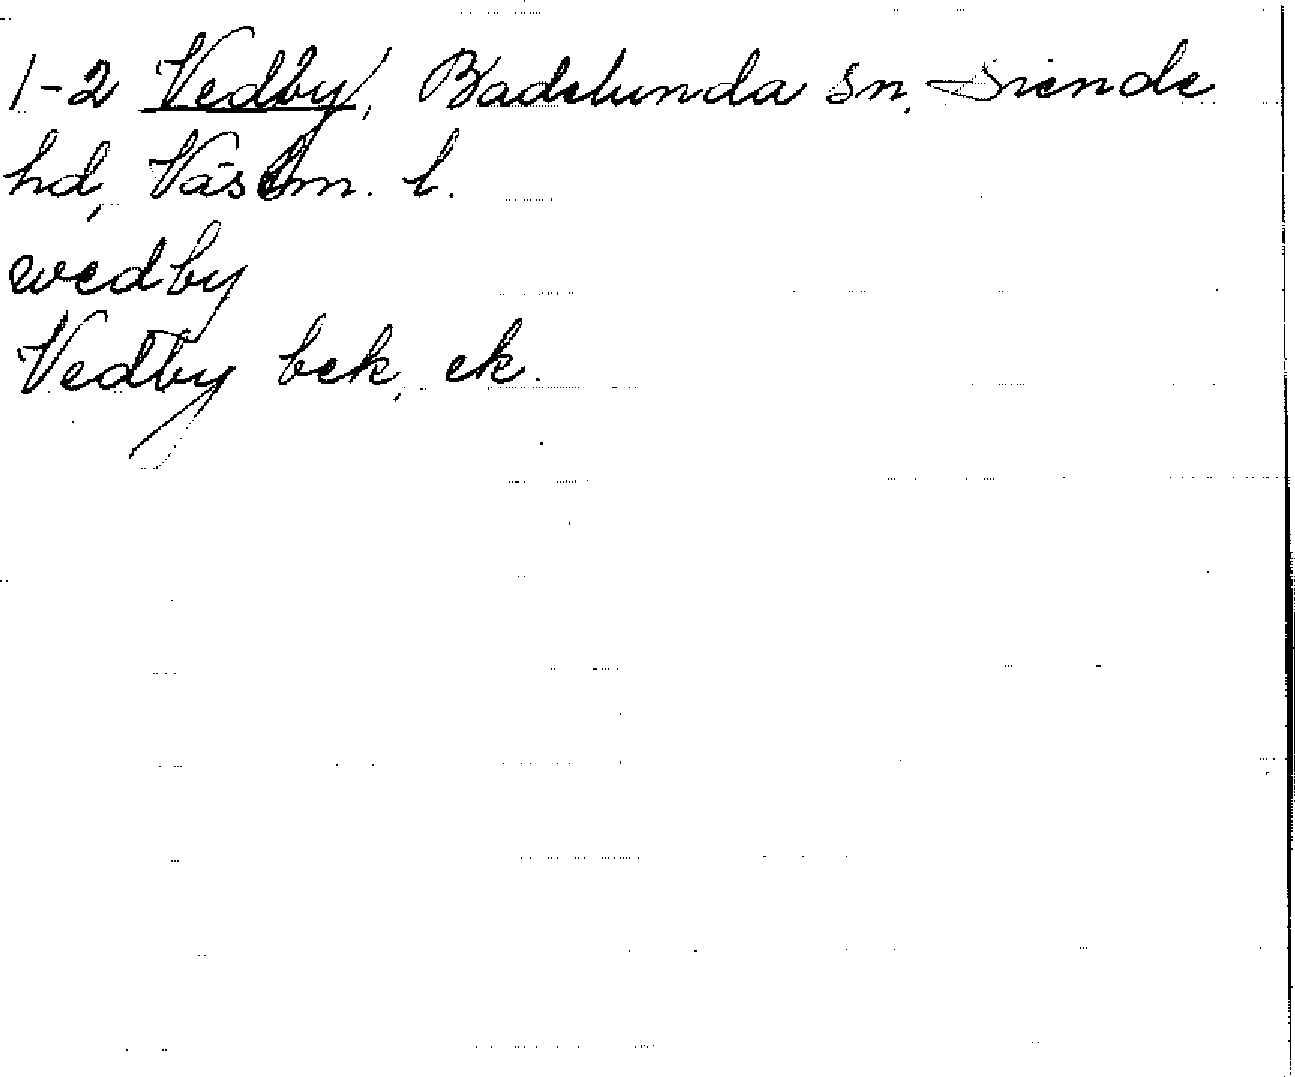 1-2 Vedby, Badelunda sn, Siende
hd, Västm. l.
wedby
Vedby bek, ek.